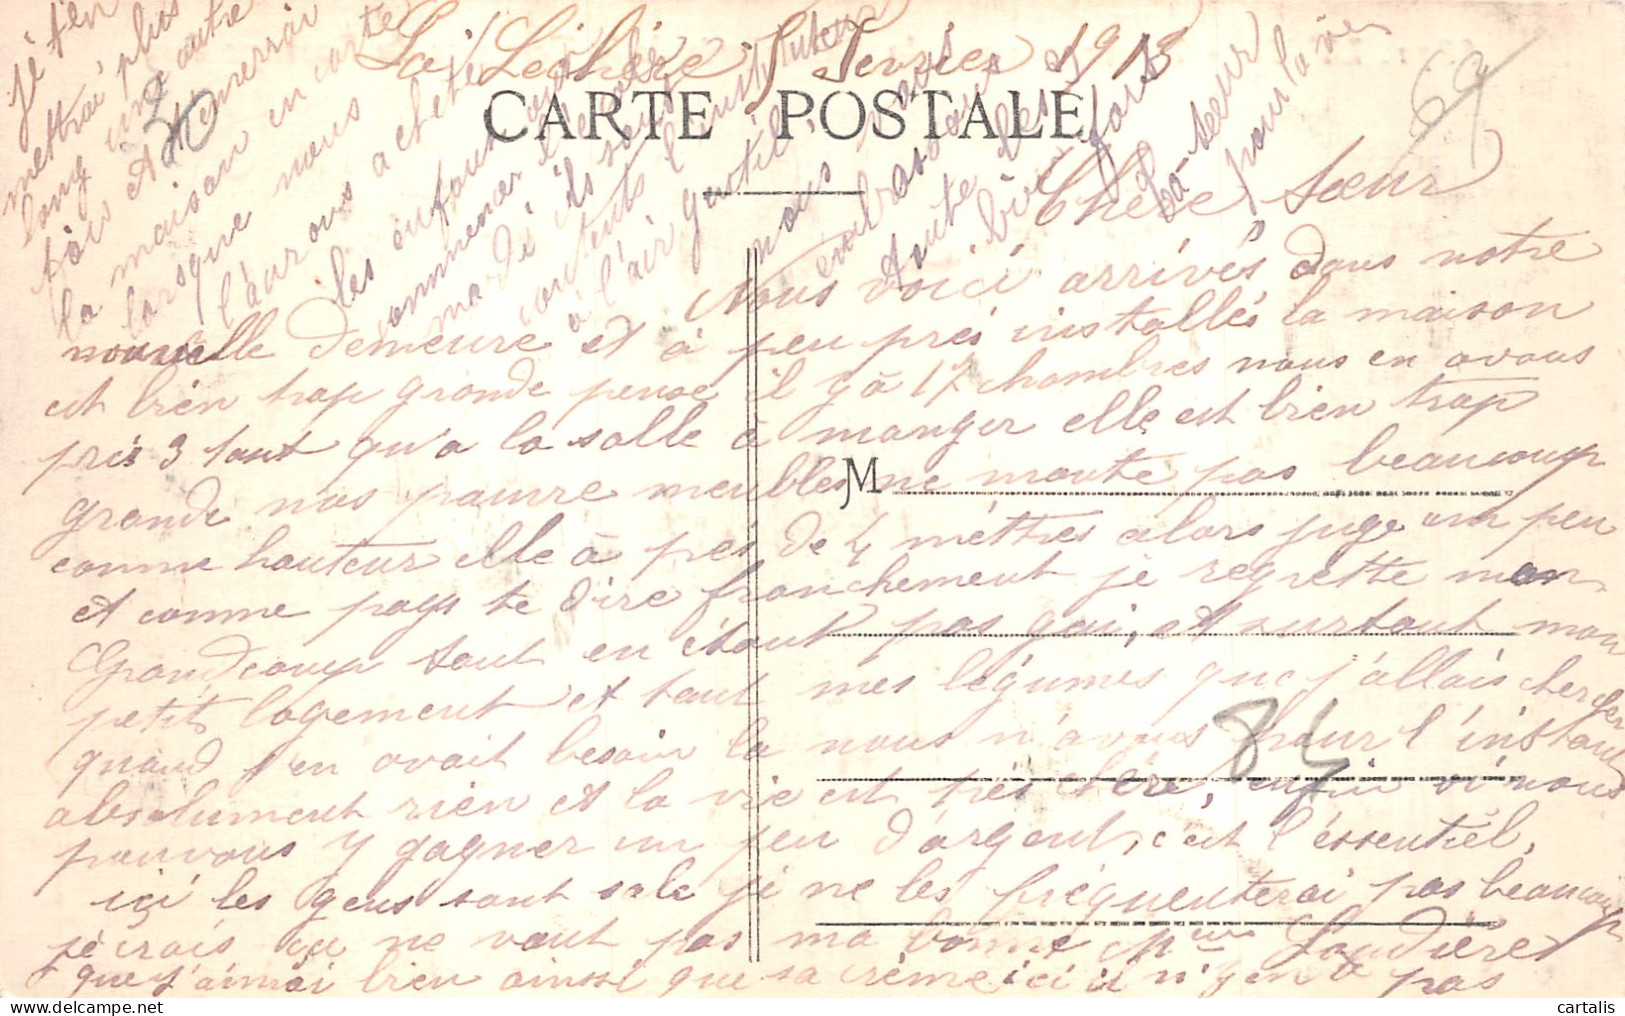 La Léchère 8 Fevrier 1913
CARTE POSTALE
69
30
Chère Sœur
Nous voici arrivés dans notre
nouvelle demeure et à peu prés installés la maison
est bien trop grande pense il y à 17 chambres nous en avons
pris 3 tant qu'a la salle à manger elle est bien trop
grande nos pauvre meubles ne monte pas beaucoup
M
comme hauteur elle à prés de 4 mèttres alors juge un peu
et comme pays te dire franchement je regrette mon
Grandcamp tout en étant pas gai, et surtout mon
petit logement et tout mes légumes que j'allais chercher
quand j'en avait besoin la nous n'avons pour l'instant
84
absolument rien et la vie est trés chère, enfin si nous
pouvons y gagner un peu d'argent, c'est l'éssentiel,
içi les gens sont sale je ne les fréquenterai pas beaucoup
je crois ça ne vaut pas ma bonne Mme
que j'aimai bien ainsi que sa crème ici il n'y en à pas
je t'en
mettrai plus
long une autre
fois et t'enverrai
la maison en carte
lorsque nous
l'aurons acheté
les enfants vont
commencer l'école
mardi ils sont
contents l'instituteur
à l'air gentil
nous vous
embrassons
toute les
bien fort
Ta seur
pour la vie
cartalis.com